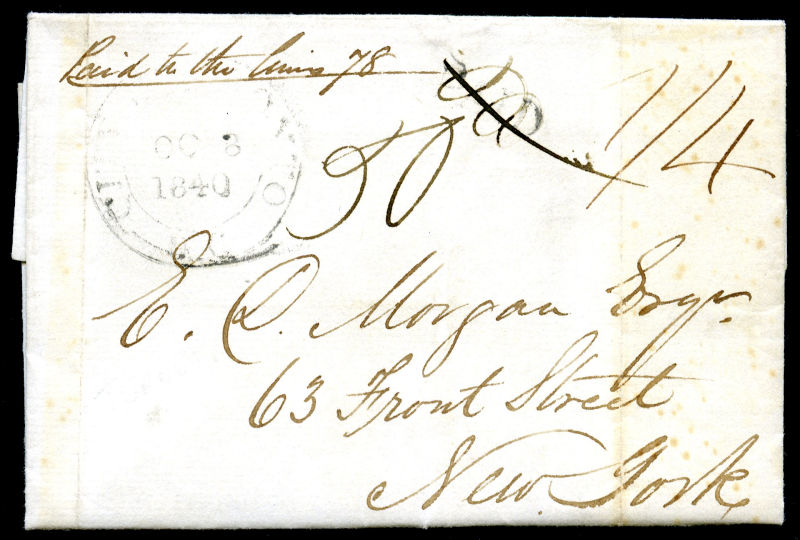 Paid to the lines 78
1/4
50
OC 8
1840
E. D. Morgan Esqr.
63 Front Street
New York